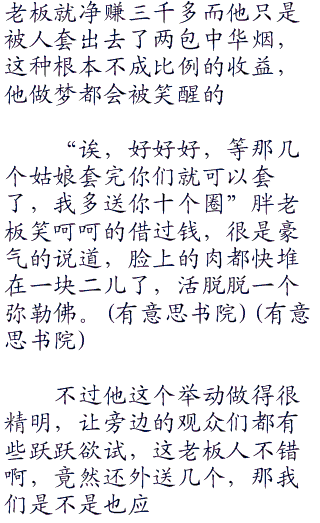 老板就净赚三千多而他只是
被人套出去了两包中华烟，
这种根本不成比例的收益，
他做梦都会被笑醒的
“诶，好好好，等那几
个姑娘套完你们就可以套
了，我多送你十个圈”胖老
板笑呵呵的借过钱，很是豪
气的说道，脸上的肉都快堆
在一块二儿了，活脱脱一个
弥勒佛。(有意思书院)(有意
思书院)
不过他这个举动做得很
精明，让旁边的观众们都有
些跃跃欲试，这老板人不错
啊，竟然还外送几个，那我
们是不是也应